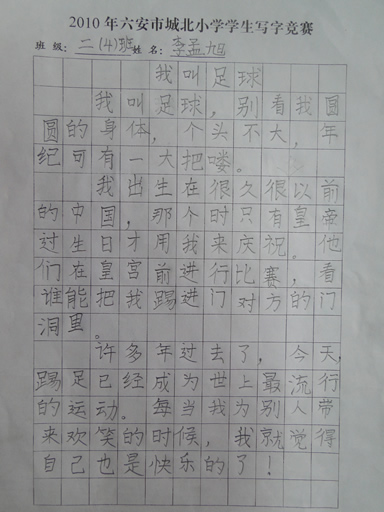 2010年六安市城北小学学生写字竞赛
班级：二(4)班姓名：李孟旭
我叫足球
我叫足球，别看我圆
圆的身体，个头不大，年
纪可有一大把喽。
我出生在很久很以前
的中国，那个时只有皇帝
过生日才用我来庆祝。他
们在皇宫前进行比赛，看
谁能把我踢进门对方的门
洞里。
许多年过去了，今天，
踢足已经成为世上最流行
的运动。每当我为别人带
来欢笑的时候，我就觉得
自己也是快乐的了！